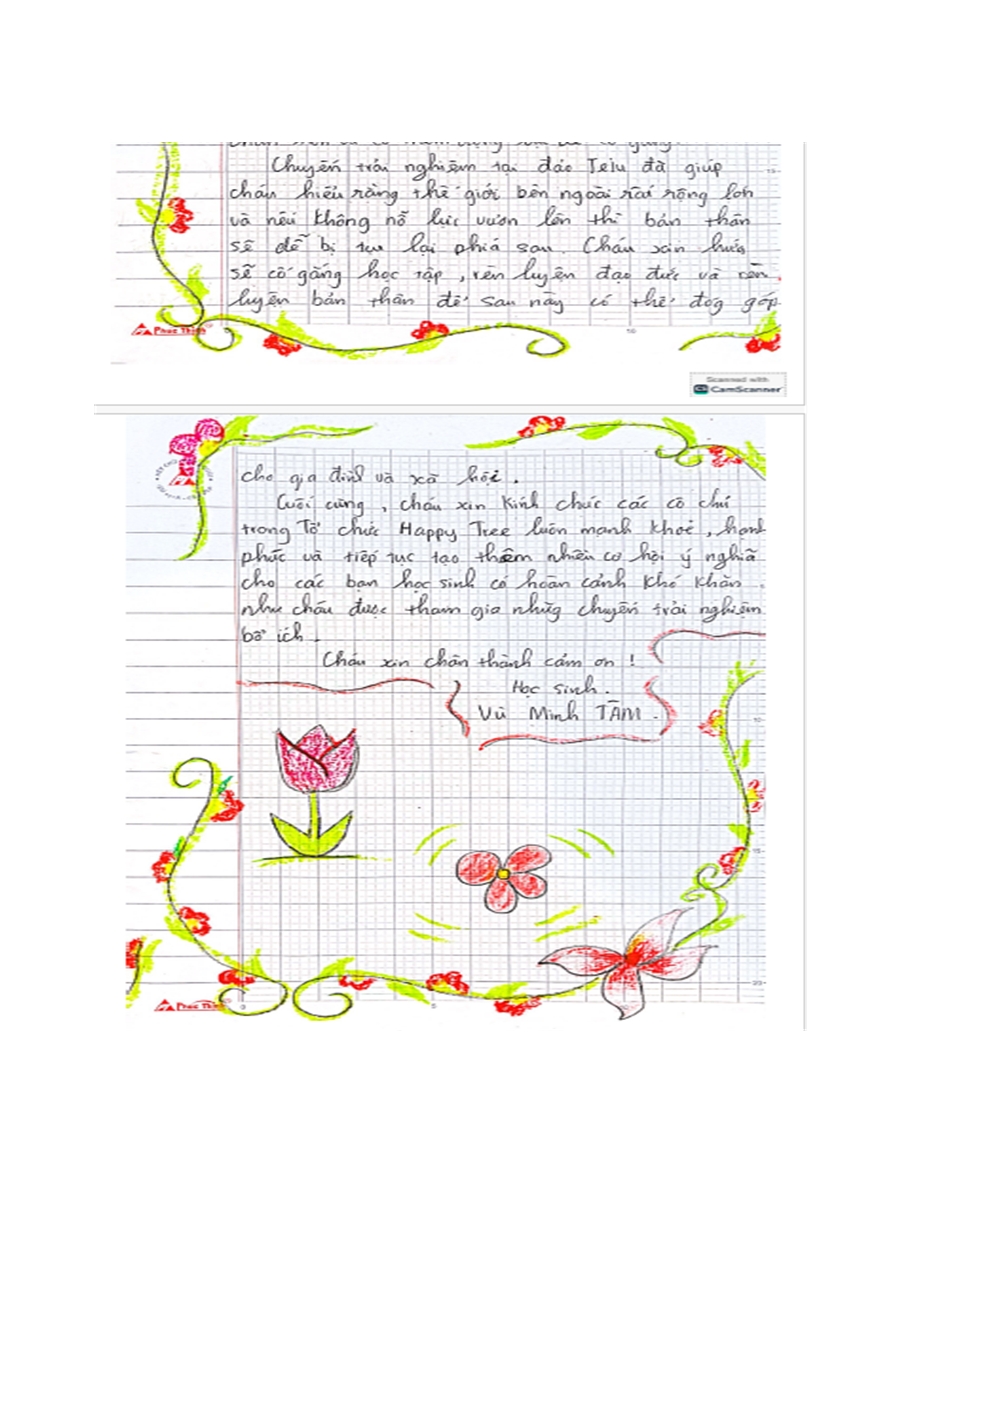 Chuyến trải nghiệm tại đảo Jeju đã giúp
cháu hiểu rằng thế giới bên ngoài rất rộng lớn
và nếu không nỗ lực vươn lên thì bản thân
sẽ dễ bị tụt lại phía sau. Cháu xin hứa
sẽ cố gắng học tập, rèn luyện đạo đức và rèn
luyện bản thân để sau này có thể đóg góp
Phuc Thinh
10
Scanned with
CS CamScanner
cho gia đình và xã hội.
Cuối cùng, cháu xin kính chúc các cô chú
trong Tổ chức Happy Tree luôn mạnh khoẻ, hạnh
phúc và tiếp tục tạo thêm nhiều cơ hội ý nghĩa
cho các bạn học sinh có hoàn cảnh khó khăn
như cháu được tham gia nhữg chuyến trải nghiệm
bổ ích.
Cháu xin chân thành cảm ơn !
Học sinh.
Vũ Minh TÂM.
10
15
20
Phuc Thinh
0
5